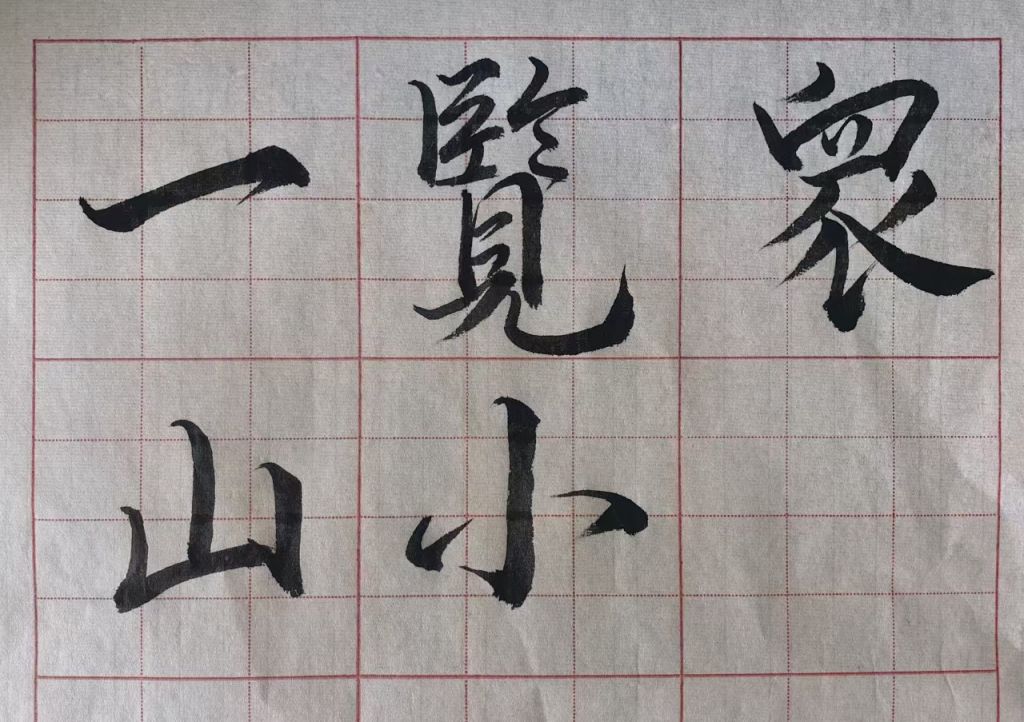 一覽衆
山小